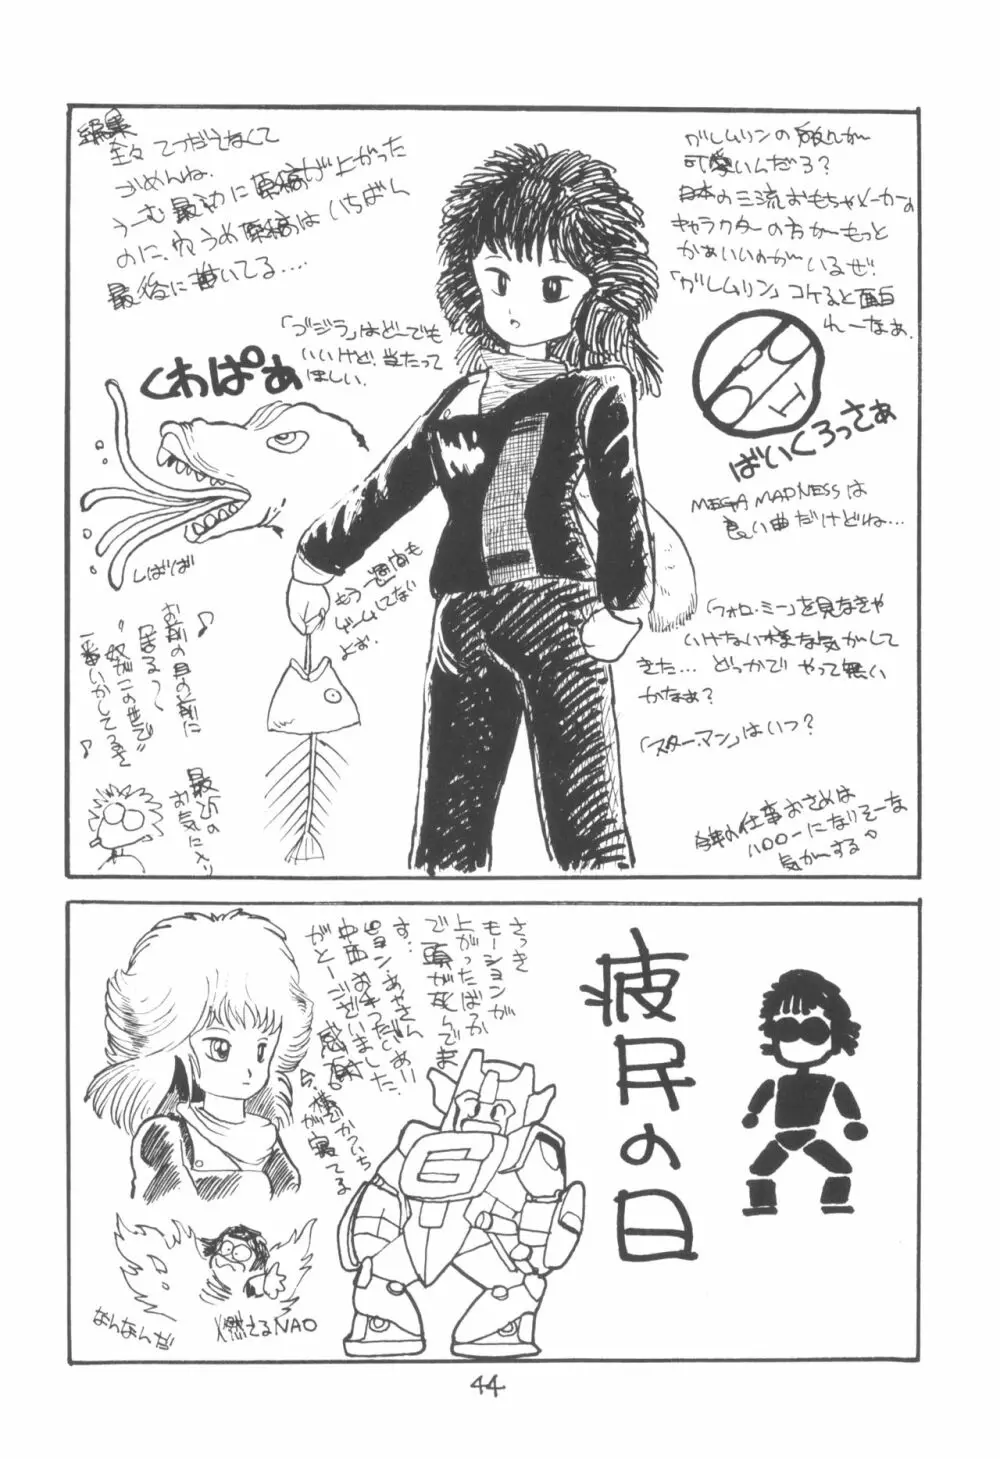 編集
全々 てつだえなくて
ごめんね.
うーむ 最初に原稿が上がった
のに、
原稿はいちばん
最後に描いてる....
「ゴジラ」はど～でも
いいけど、当たって
ほしい.
くわぱぁ
しばしば
もう一週間も
ゲームしてない
よぉ.
♪お前の目の前に
居る～
"奴がこの世で"
一番いかしてるぞ♪
最近の
お気に入り
ガレムリンの
可愛いんだろ?
日本の三流おもちゃメーカーの
キャラクターの方がもっと
かぁいいのがいるぜ!
「ガレムリン」コケると面白
れーなぁ.
ばいくろっさぁ
MEGA MADNESSは
良い曲だけどね...
「フォロ・ミー」を見なきゃ
いけない様な気がして
きた... どっかで やって無い
かなぁ?
「スター・マン」はいつ?
今年の仕事おさめは
になりそーな
気がーする。
さっき
モーションが
上がったばっか
で頭が死んでま
す...
ピョン・あやさん
中西
がとーございました.
感謝。
今、横で
が寝てる
疲民の日
G
なんなんだ
燃えるNAO
44